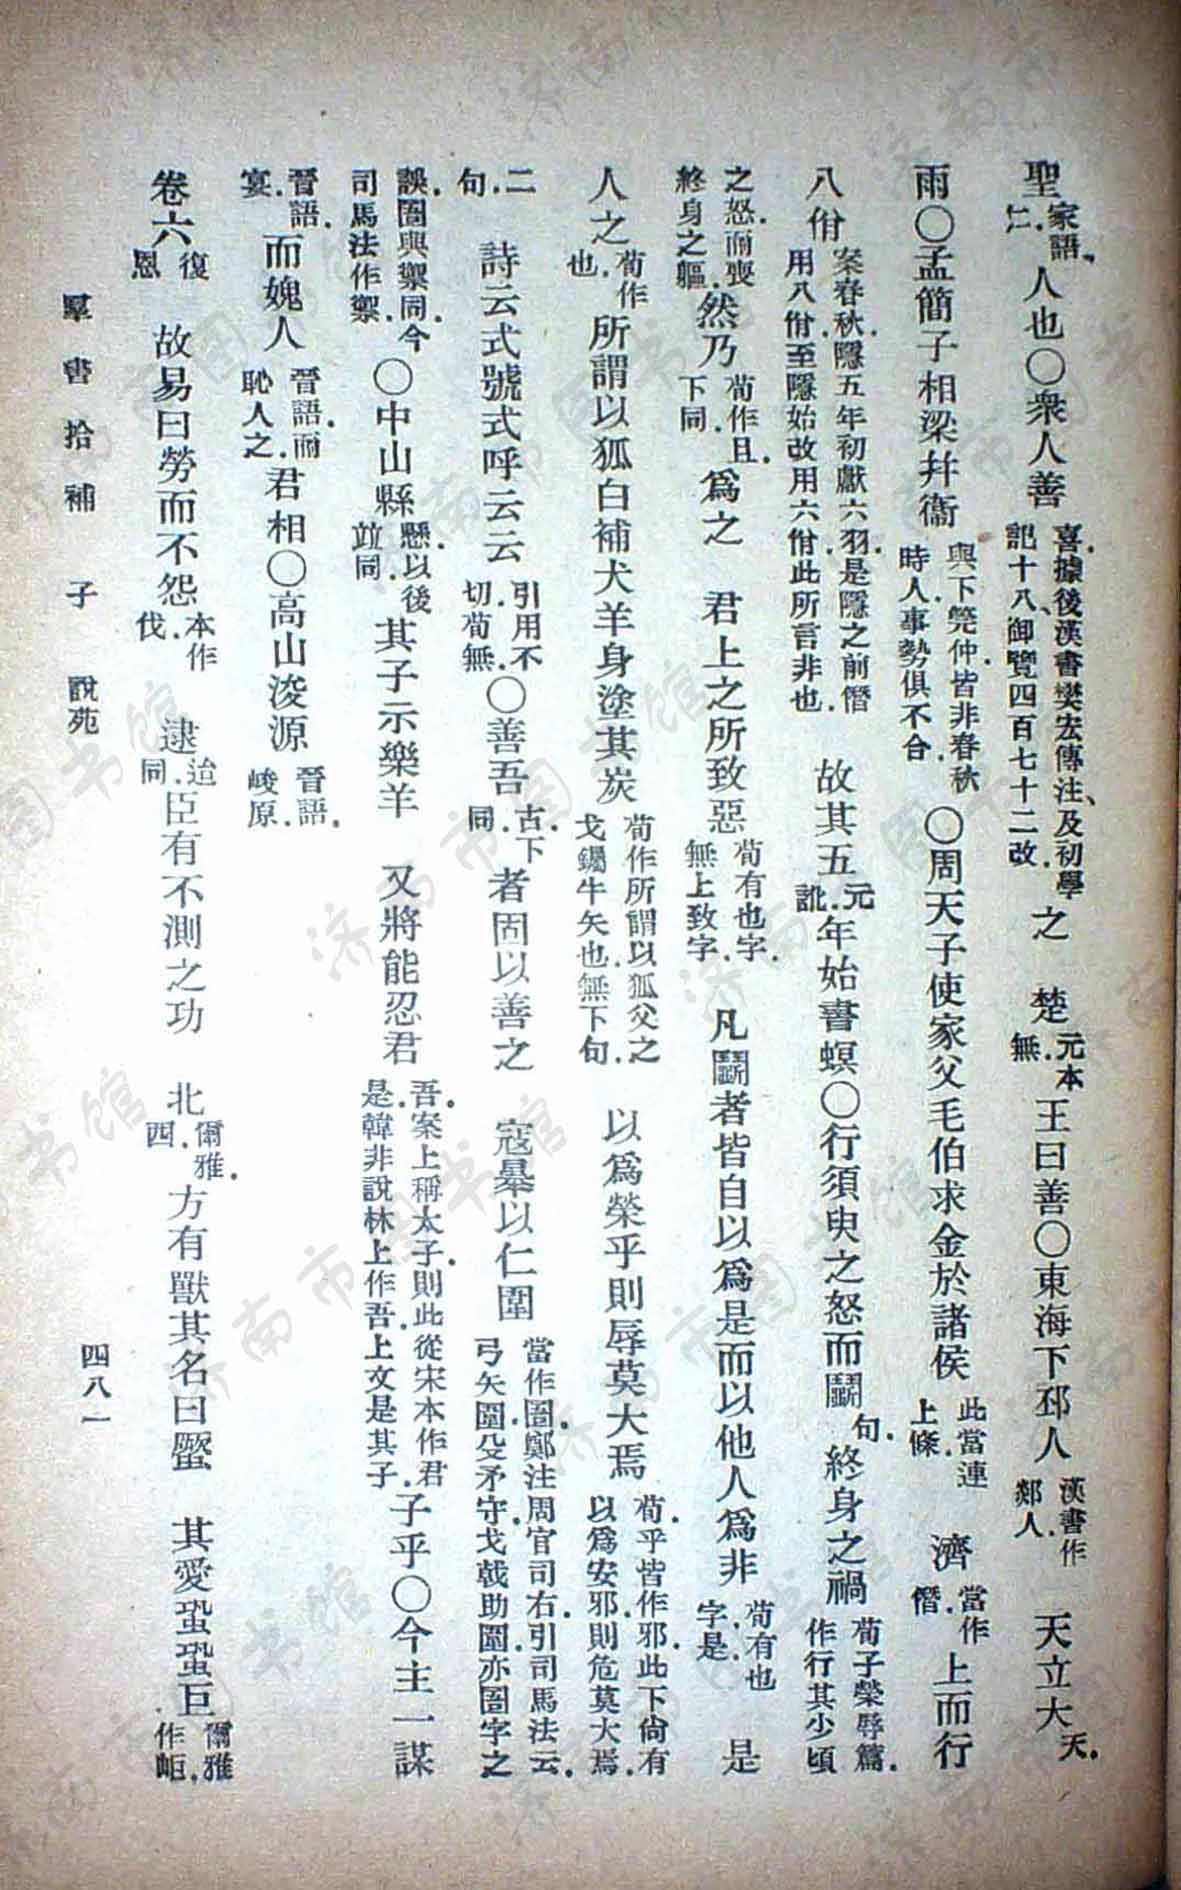 聖家語、仁。人也〇衆人善喜。據後漢書樊宏傳注、及初學記十八、御覽四百七十二改。之　楚元本無。王曰善〇東海下邳人漢書作郯人。　天立大天。
雨〇孟簡子相梁幷衞與下筦仲皆非春秋時人。事勢俱不合。〇周天子使家父毛伯求金於諸侯此當連上條。　濟當作僭。上而行
八佾案春秋。隱五年初獻六羽。是隱之前僭用八佾。至隱始改用六佾。此所言非也。　故其五元訛。年始書螟〇行須臾之怒而鬭句。終身之禍荀子榮辱篇。作行其少頃
之怒。而喪終身之軀。然乃荀作且。下同。爲之　君上之所致惡荀有也字。無上致字。　凡鬭者皆自以爲是而以他人爲非荀有也字。是。　是
人之荀作也。所謂以狐白補犬羊身塗其炭荀作所謂以狐父之戈钃牛矢也。無下句。　以爲榮乎則辱莫大焉荀。乎皆作邪。此下尙有以爲安邪。則危莫大焉。
二句。　詩云式號式呼云云引用不切。荀無。〇善吾古。下同。者固以善之　寇暴以仁圍當作圄。鄭注周官司右。引司馬法云。弓矢圍。殳矛守。戈戟助。圍亦圄字之
誤。圄與禦同。今司馬法作禦。〇中山縣懸。以後竝同。其子示樂羊　又將能忍君吾。案上稱太子。則此從宋本作君是。韓非說林上作吾。上文是其子。子乎〇今主一謀
晉語。宴。而媿人晉語。而恥人之。君相〇高山浚源晉語。峻原。
卷六復恩　故易曰勞而不怨本作伐。　逮迨同。臣有不測之功　北爾雅。四。方有獸其名曰蟨　其愛蛩蛩巨爾雅作岠。
羣書拾補　子　說苑　四八一